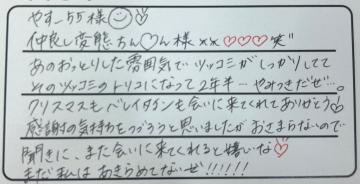 やすー55様♡
仲良し変態ちん♡ん様××♡♡♡笑"
あのおっとりした雰囲気でツッコミがしっかりしてて
そのツッコミのトリコになって2年半…やみつきだぜ…。
クリスマスもバレイタインも会いに来てくれてありがとう♡
感謝の気持ちをつづろうと思いましたがおさまらないので
聞きに、また会いに来てくれると嬉しいな♡
まだ私はあきらめてないぜ!!!!!!